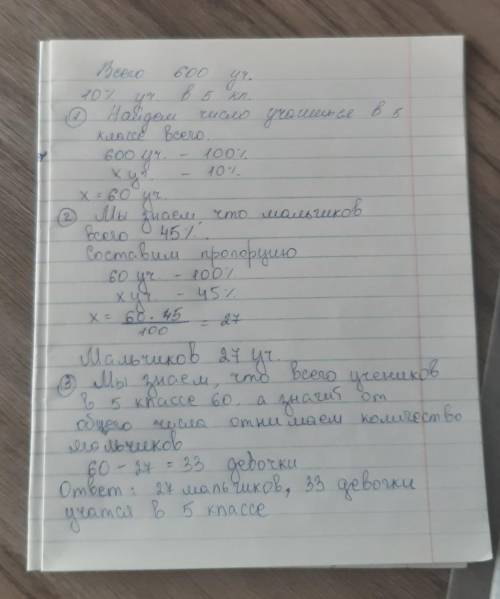 Всего 600 уч.
10% уч в 5 кл.
① Найдем число учащихся в 5
классе всего.
600 уч. - 100%
x уч. - 10%
x = 60 уч.
② Мы знаем, что мальчиков
всего 45%.
Составим пропорцию
60 уч - 100%
x уч - 45%
x = 60 · 45 / 100 = 27
Мальчиков 27 уч.
③ Мы знаем, что всего учеников
в 5 классе 60, а значит от
общего числа отнимаем количество
мальчиков
60 - 27 = 33 девочки
Ответ: 27 мальчиков, 33 девочки
учатся в 5 классе